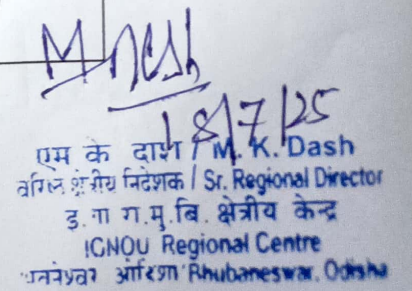 18/7/25
एम के दाश / M. K. Dash
वरिष्ठ क्षेत्रीय निदेशक / Sr. Regional Director
इ. गा रा.मु.बि. क्षेत्रीय केन्द्र
IGNOU Regional Centre
भुवनेश्वर ओडिशा Bhubaneswar, Odisha